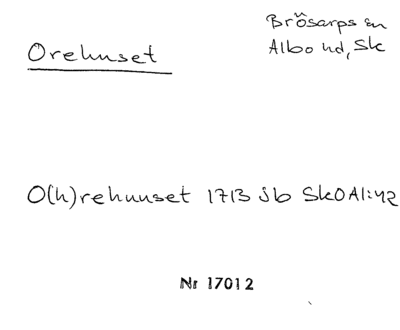 Orehuset
Brösarps sn
Albo hd, Sk
O(h)rehuuset 1713 Jb SkOAl:42
Nr 17012